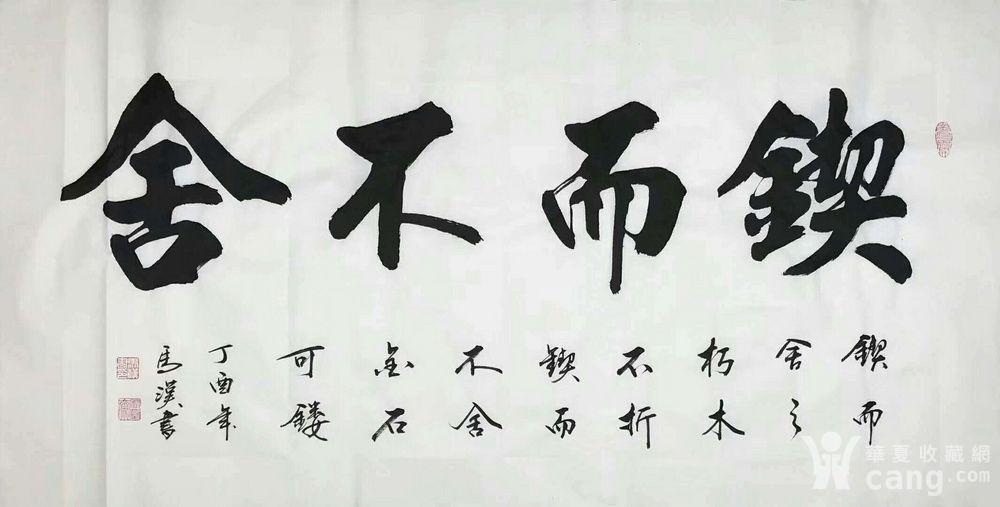 鍥而不舍
鍥而
舍之
朽木
不折
鍥而
不舍
金石
可鏤
丁酉年
馬漢書
華夏收藏網
cang.com